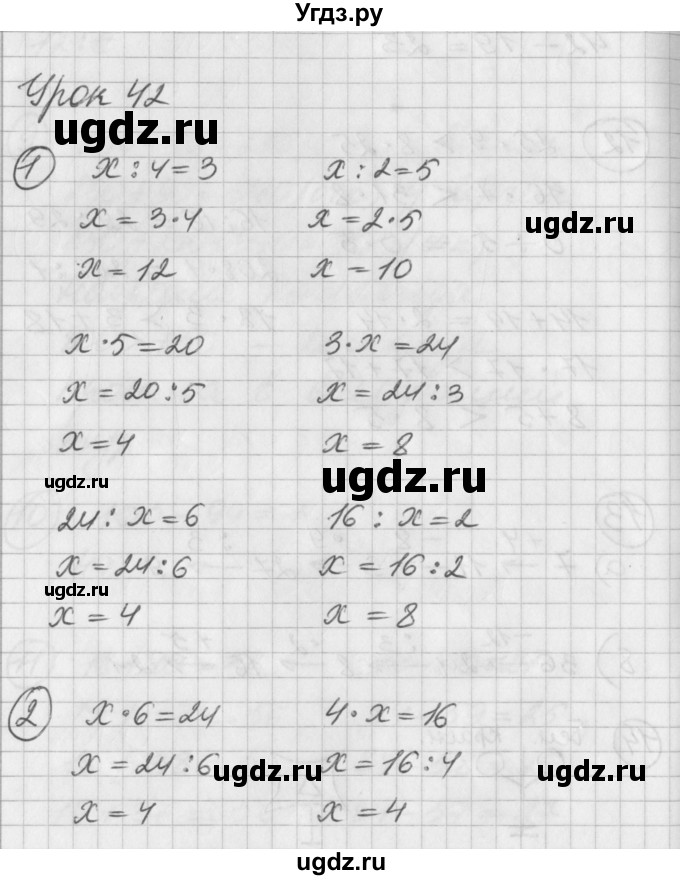 Угдз.ру
Урок 42
ugdz.ru
1 x : 4 = 3 x : 2 = 5
x = 3 · 4 x = 2 · 5
ugdz.ru
x = 12 x = 10
x · 5 = 20 3 · x = 24
x = 20 : 5 x = 24 : 3
x = 4 x = 8
ugdz.ru ugdz.ru
24 : x = 6 16 : x = 2
x = 24 : 6 x = 16 : 2
ugdz.ru
x = 4 x = 8
2 x · 6 = 24 4 · x = 16
x = 24 : 6 x = 16 : 4
ugdz.ru ugdz.ru
x = 4 x = 4
ugdz.ru